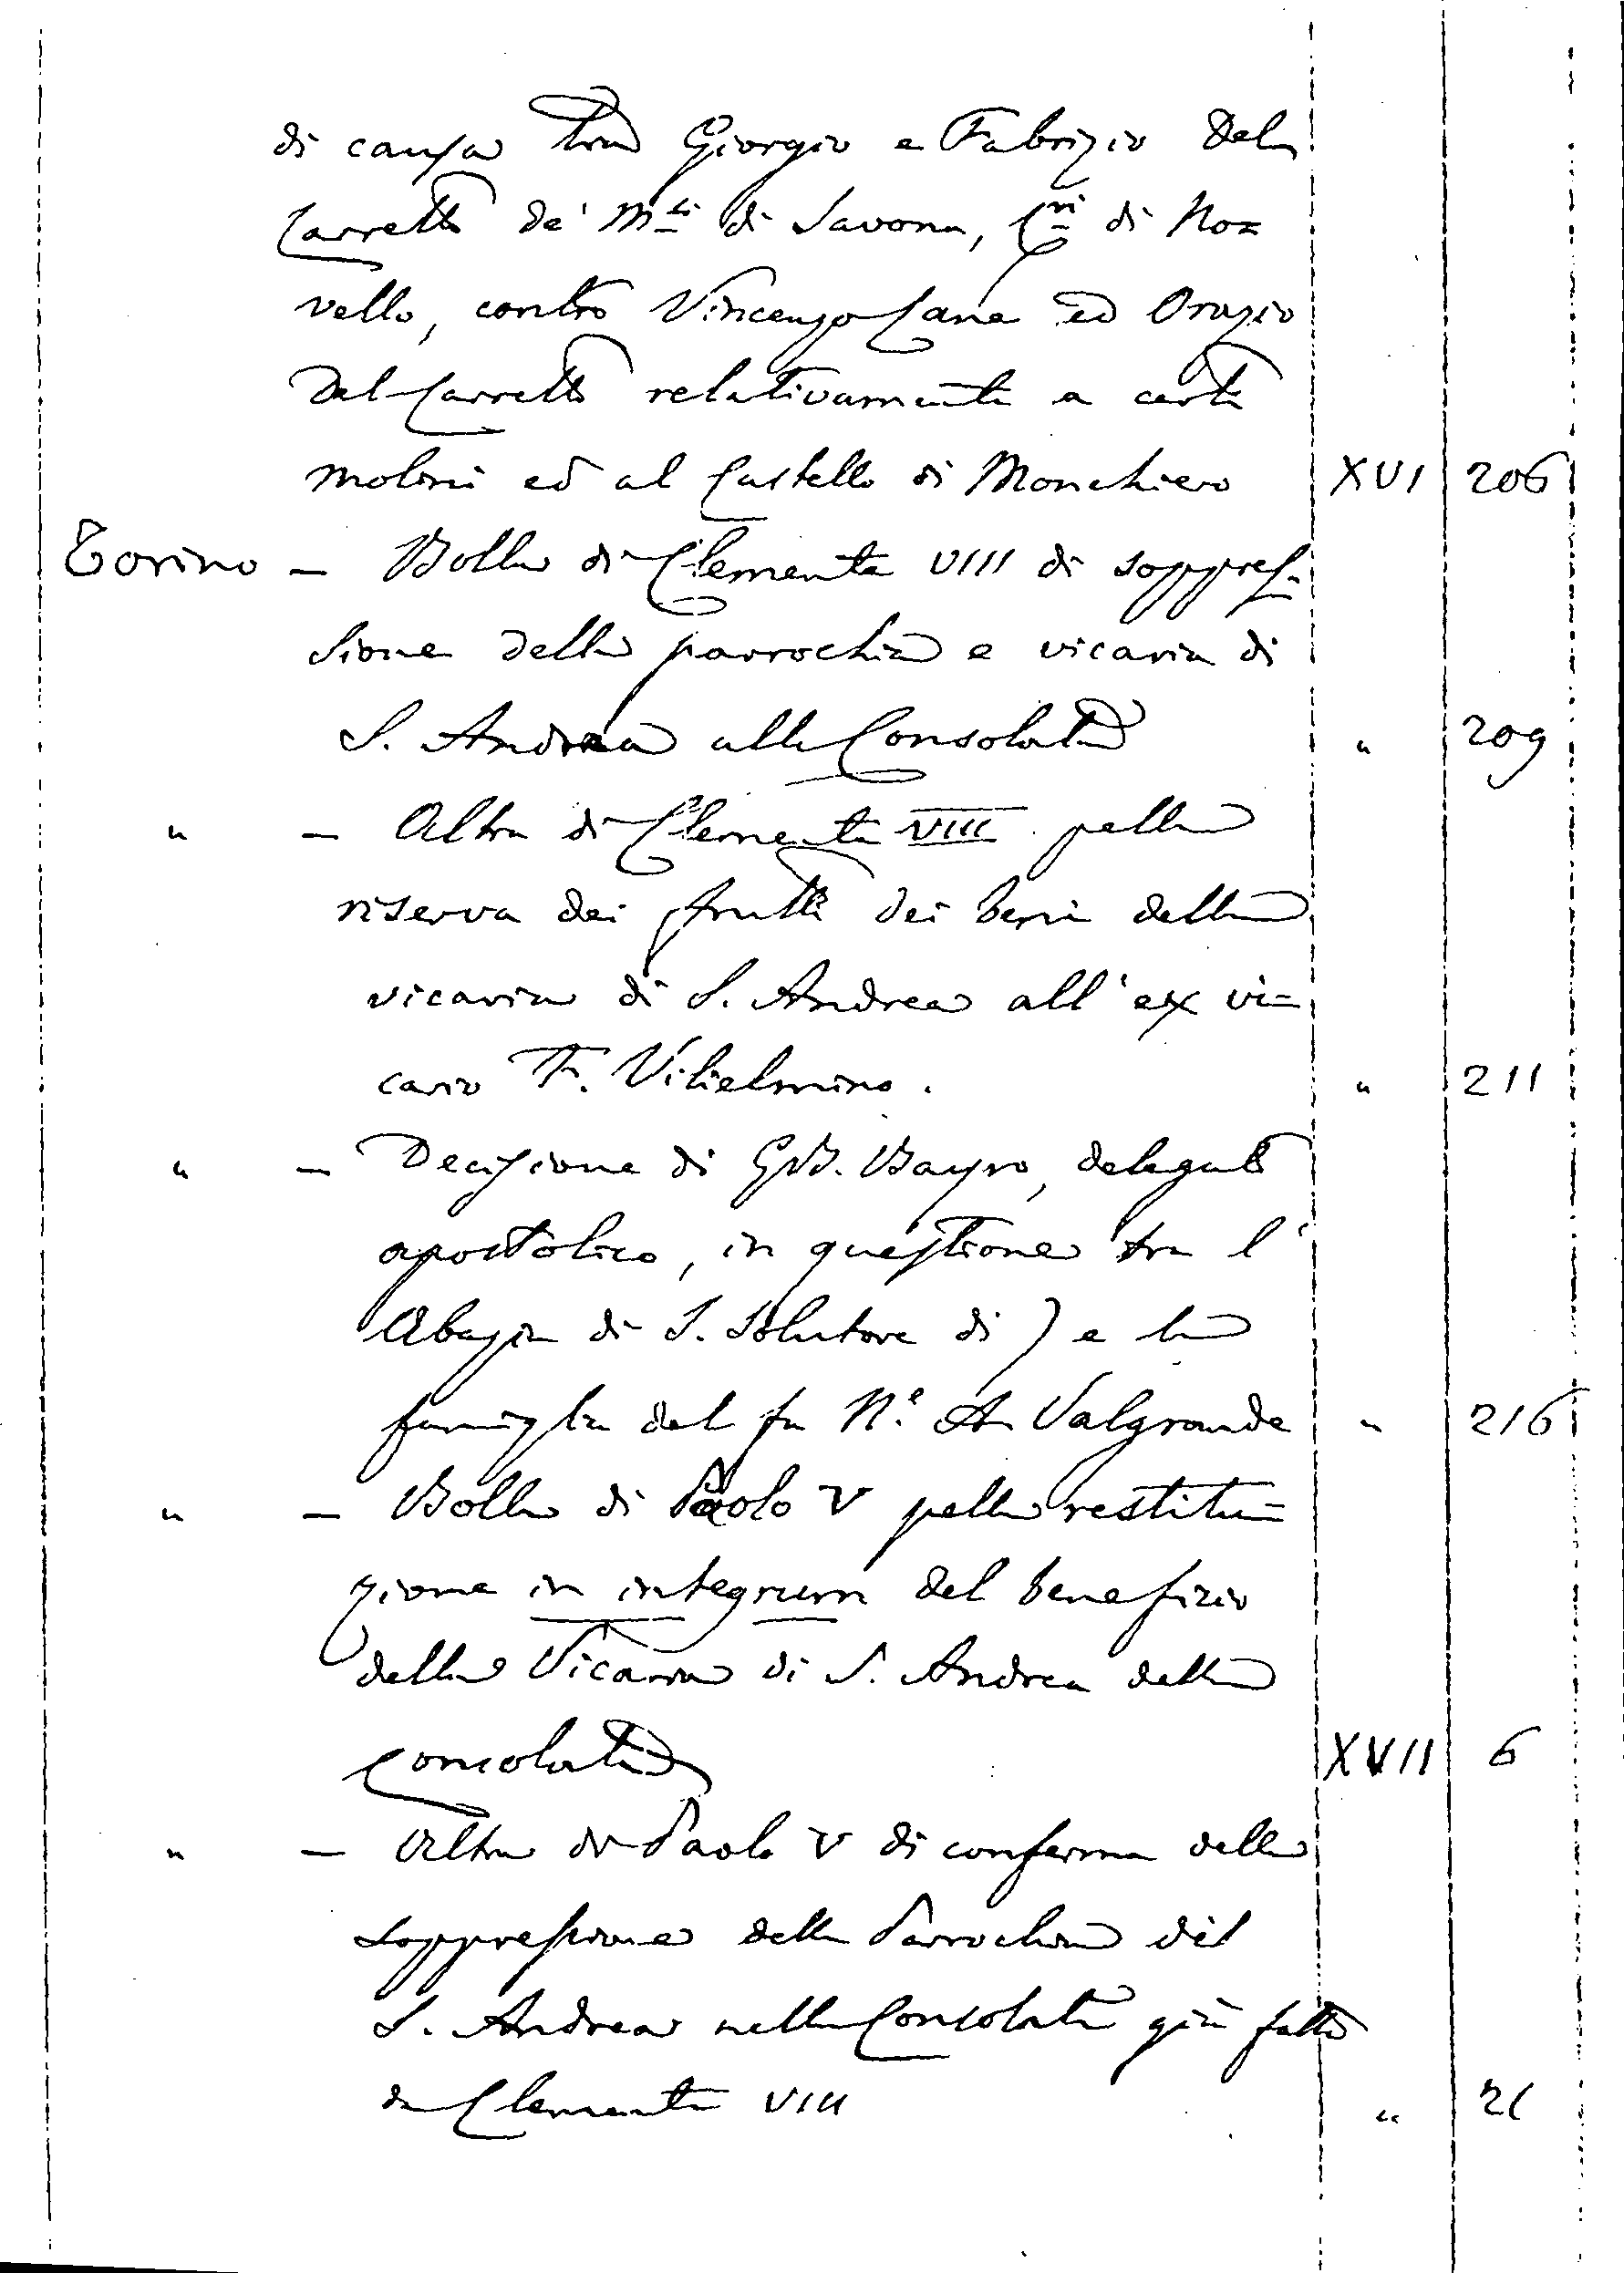 di causa tra Giorgio e Fabrizio Del
Carretto de' M.ti di Savona, C.ri di No=
vello, contro Vincenzo Cane ed Orazio
Del Carretto relativamente a certi
molini ed al Castello di Monchiero XVI 206
Torino — Bolla di Clemente VIII di soppres=
sione della parrochia e vicaria di
S. Andrea alla Consolata " 209
" — Altra di Clemente VIII pella
riserva dei frutti dei beni della
vicaria di S. Andrea all'ex vi=
cario F. Vilielmino. " 211
" — Decisione di G.B. Bayro, delegato
apostolico, in questione tra l'
Abazia di S. Solutore di ) e la
famiglia del fu N.e A. Valgrande " 216
" — Bolla di Paolo V pella restitu=
zione in integrum del benefizio
della Vicaria di S. Andrea della
Consolata XVII 6
" — Altra di Paolo V di conferma della
soppressione della Parrochia di
S. Andrea nella Consolata già fatta
da Clemente VIII " 21